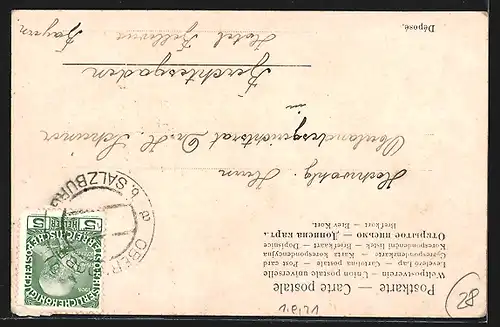 Postkarte — Carte postale
Weltpostverein — Union postale universelle
Levelező Lap — Cartolina postale — Post card
Correspondenzkarte — Karta korespondencyjna
Korespondenční lístek — Brefkaart — Dopisnice
Открытое письмо — Дописна карт.
Brefkort — Brev Kort
Dépose.
Hochwohlg. Herrn
Oberlandesgerichtsrat Dr. H.
in
Berchtesgaden
Hotel Bellevue
Bayern
OBER
b. SALZBURG
a
5 HELLER 5
K.K. OESTERREICHISCHE POST
1.8.21
28